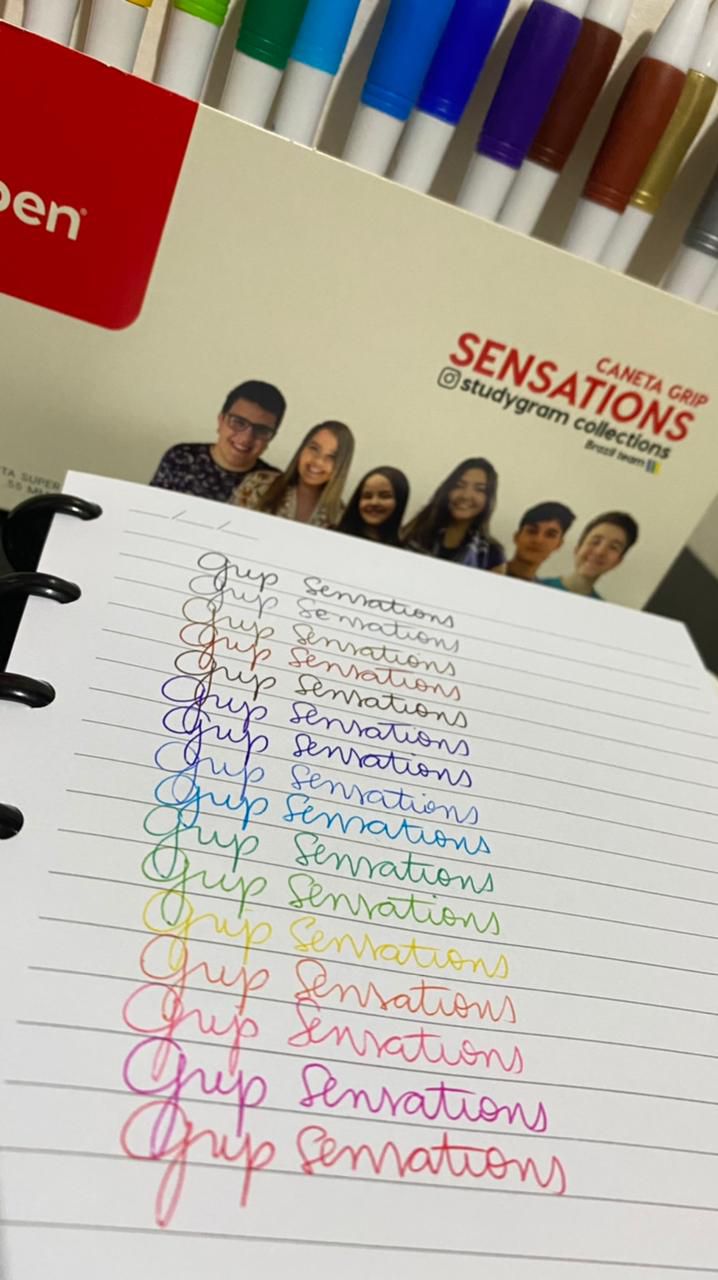 pen®
CANETA GRIP
SENSATIONS
studygram collections
Brazil team
TA SUPER
Grip Sensations
Grip Sensations
Grip Sensations
Grip Sensations
Grip Sensations
Grip Sensations
Grip Sensations
Grip Sensations
Grip Sensations
Grip Sensations
Grip Sensations
Grip Sensations
Grip Sensations
Grip Sensations
Grip Sensations
Grip Sensations